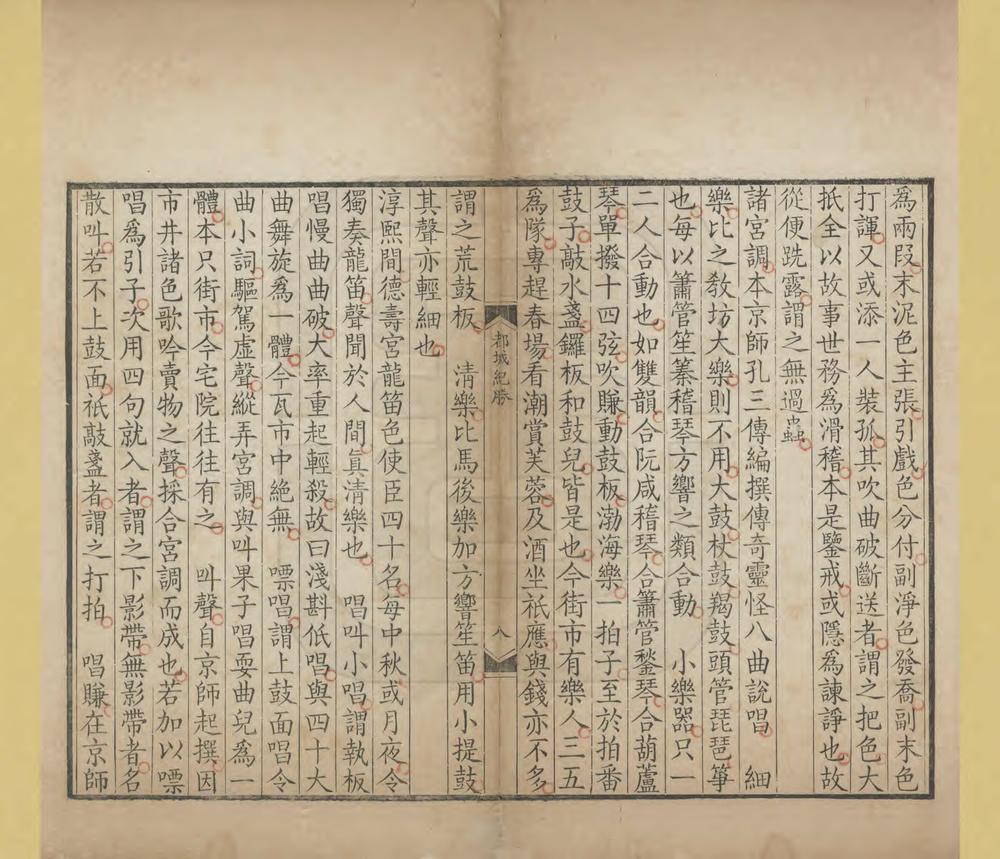 爲兩段末泥色主張引戲色分付副淨色發喬副末色
打諢又或添一人裝孤其吹曲破斷送者謂之把色大
扺全以故事世務爲滑稽本是鑒戒或隱爲諫諍也故
從便跣露謂之無過蟲
諸宮調本京師孔三傳編撰傳奇靈怪八曲說唱　細
樂比之教坊大樂則不用大鼓杖鼓羯鼓頭管琵琶箏
也每以簫管笙𥷑稽琴方響之類合動　小樂器只一
二人合動也如雙韻合阮咸稽琴合簫管鍫琴合葫蘆
琴單撥十四弦吹賺動鼓板渤海樂一拍子至於拍番
鼓子敲水盞鑼板和鼓兒皆是也今街市有樂人三五
爲隊專趕春場看潮賞芙蓉及酒坐祇應與錢亦不多
謂之荒鼓板　清樂比馬後樂加方響笙笛用小提鼓
其聲亦輕細也
淳熙間德壽宮龍笛色使臣四十名每中秋或月夜令
獨奏龍笛聲聞於人間眞清樂也　唱叫小唱謂執板
唱慢曲曲破大率重起輕殺故曰淺斟低唱與四十大
曲舞旋爲一體今瓦市中絕無　嘌唱謂上鼓面唱令
曲小詞驅駕虛聲縱弄宮調與叫果子唱耍曲兒爲一
體本只街市今宅院往往有之　叫聲自京師起撰因
市井諸色歌吟賣物之聲採合宮調而成也若加以嘌
唱爲引子次用四句就入者謂之下影帶無影帶者名
散叫若不上鼓面祇敲盞者謂之打拍　唱賺在京師
都城紀勝
八